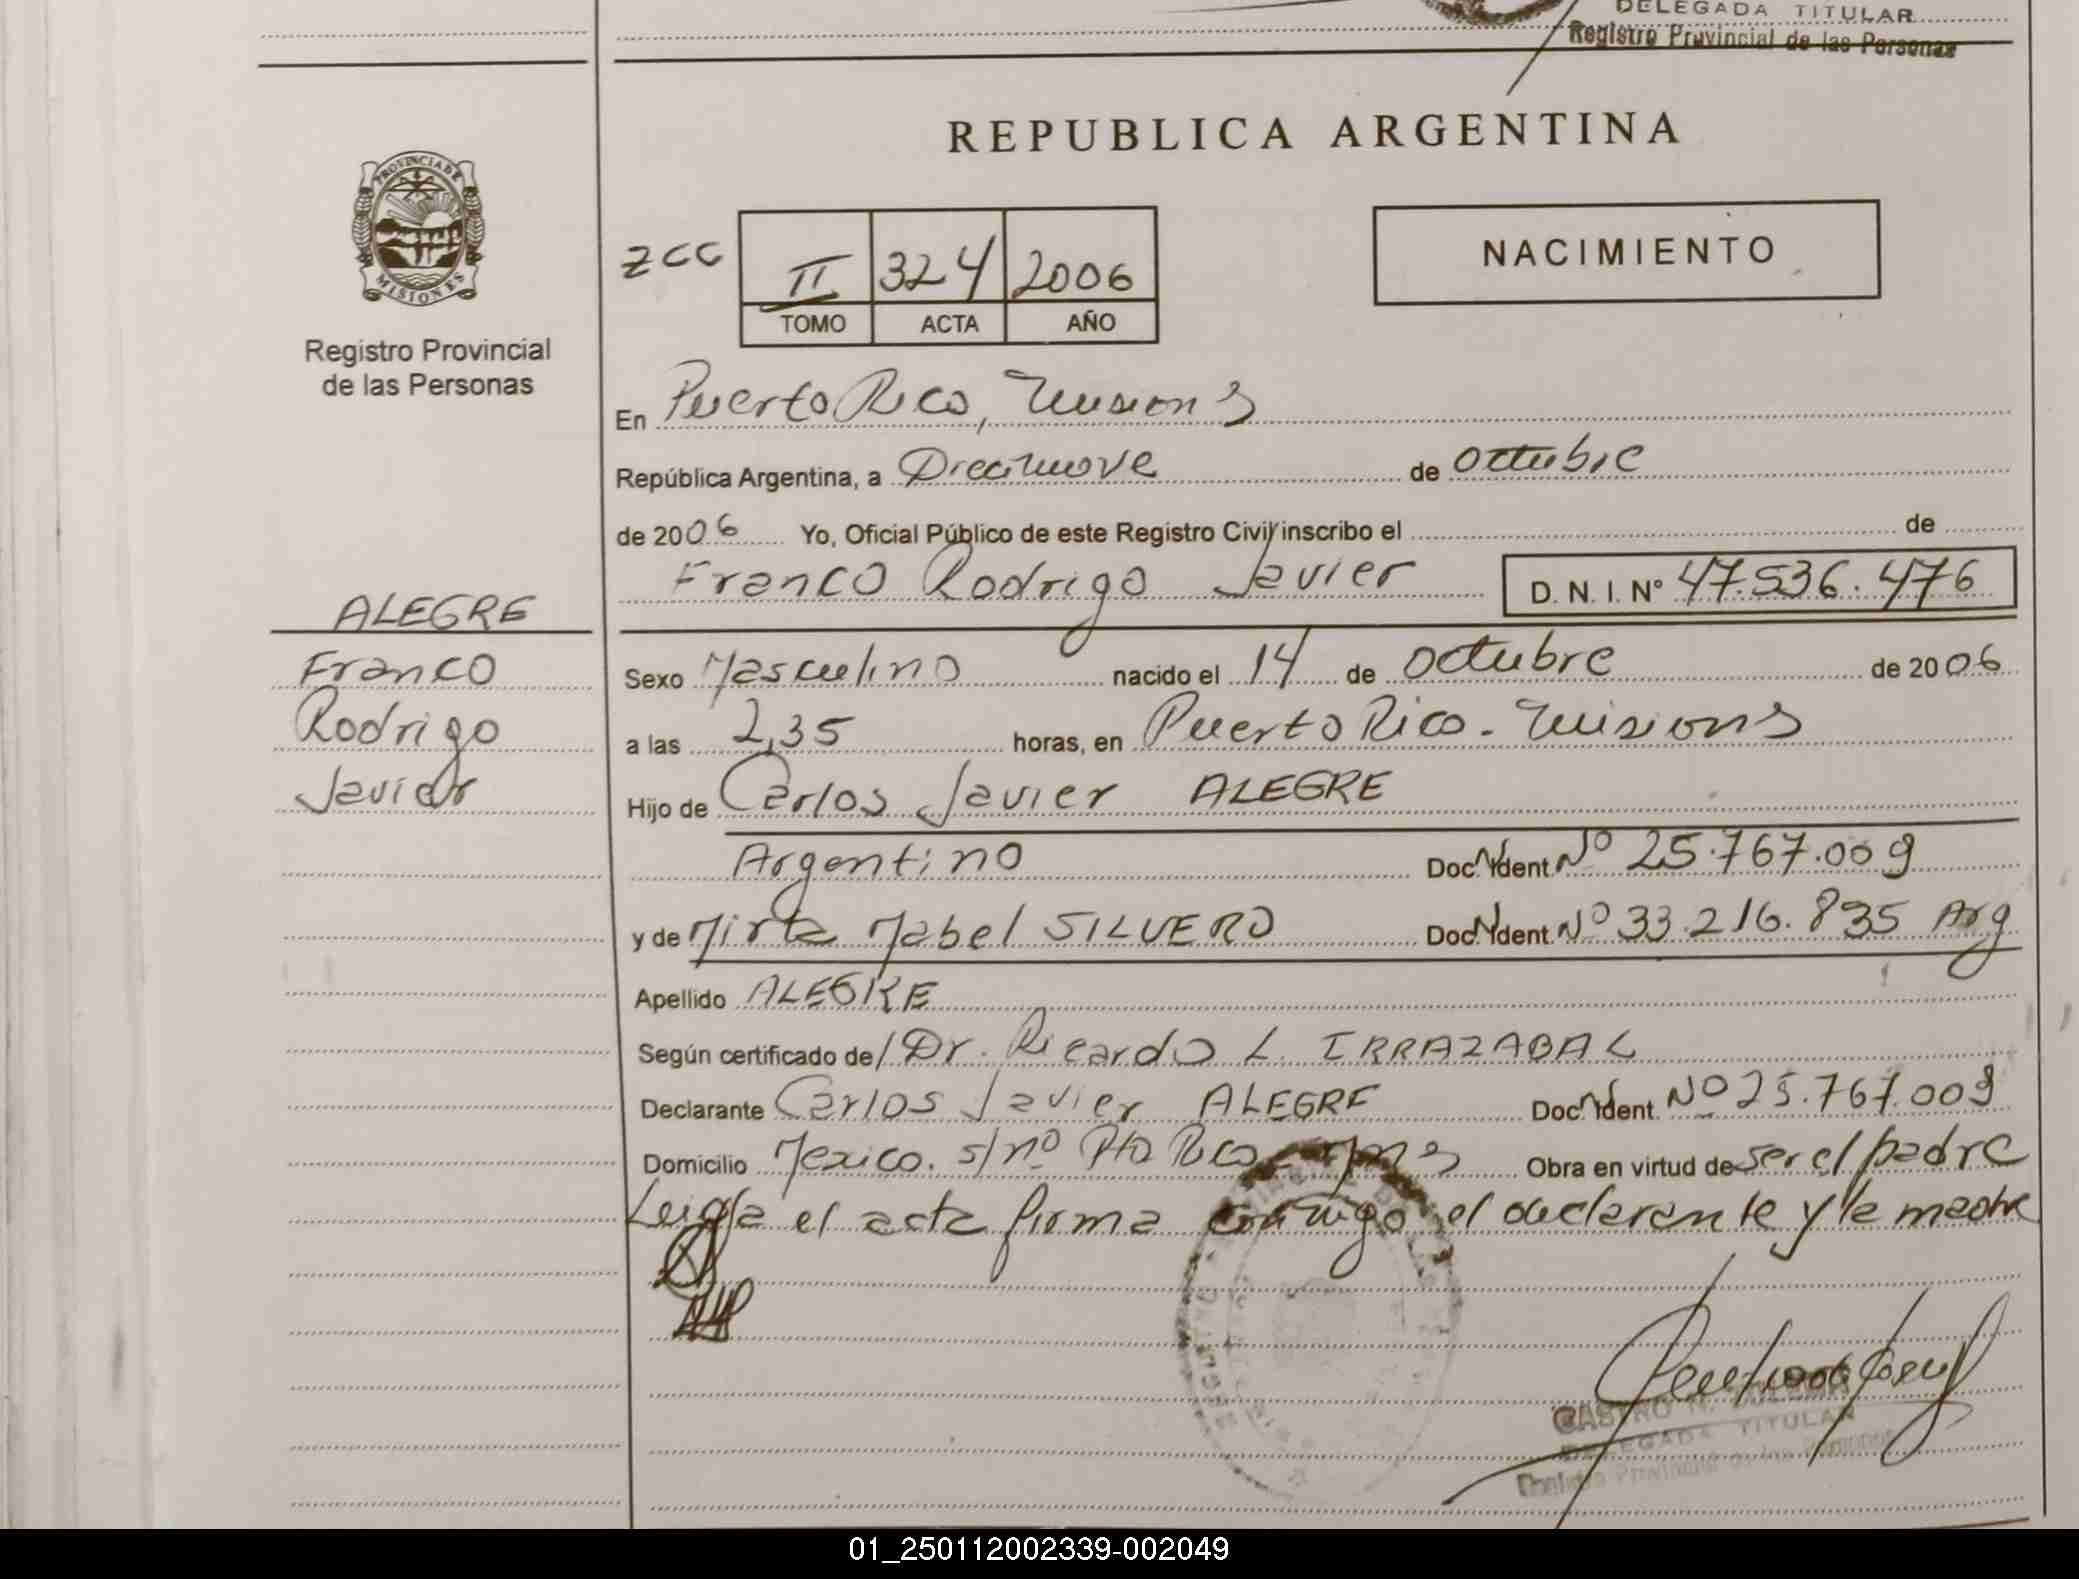 DELEGADA TITULAR
Registro Provincial de las Personas
REPUBLICA ARGENTINA
PROVINCIA DE
MISIONES
Registro Provincial
de las Personas
ZCC
II 324 2006
TOMO ACTA AÑO
NACIMIENTO
En Puerto Rico, Misiones
República Argentina, a Diecinueve de octubre
de 2006 Yo, Oficial Público de este Registro Civil inscribo el de
Franco Rodrigo Javier D. N. I. Nº 47.536.476
ALEGRE
Franco
Rodrigo
Javier
Sexo Masculino nacido el 14 de octubre de 2006
a las 2,35 horas, en Puerto Rico - Misiones
Hijo de Carlos Javier ALEGRE
Argentino Doc. Ident. Nº 25.767.009
y de Mirta Mabel SILVERO Doc. Ident. Nº 33.216.835 Arg
Apellido ALEGRE
Según certificado de/ Dr. Ricardo L. IRRAZABAL
Declarante Carlos Javier ALEGRE Doc. Ident. Nº 25.767.009
Domicilio Mexico. s/nº Pto Rico Mnes Obra en virtud de ser el padre
Leida el acta firma conmigo el declarante y la madre
CASTRO N.
DELEGADA TITULAR
Registro Provincial de las Personas
01_250112002339-002049